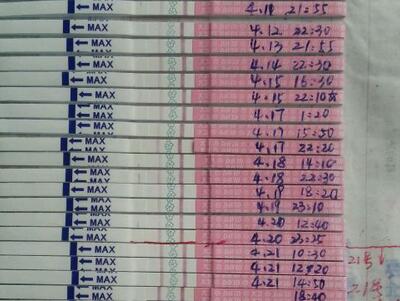 MAX 4.11 21:55
MAX 4.12 22:30
MAX 4.13 21:55
MAX 4.14 22:30
MAX 4.15 16:30
MAX 4.15 22:10
MAX 4.17 1:20
MAX 4.17 15:50
MAX 4.17 22:20
MAX 4.18 14:10
MAX 4.18 22:30
MAX 4.19 18:20
MAX 4.19 23:10
MAX 4.20 12:40
MAX 4.20 23:25
MAX 4.21 10:30
MAX 4.21 12:20
MAX 4.21 14:50
MAX 18:40
21号
21号